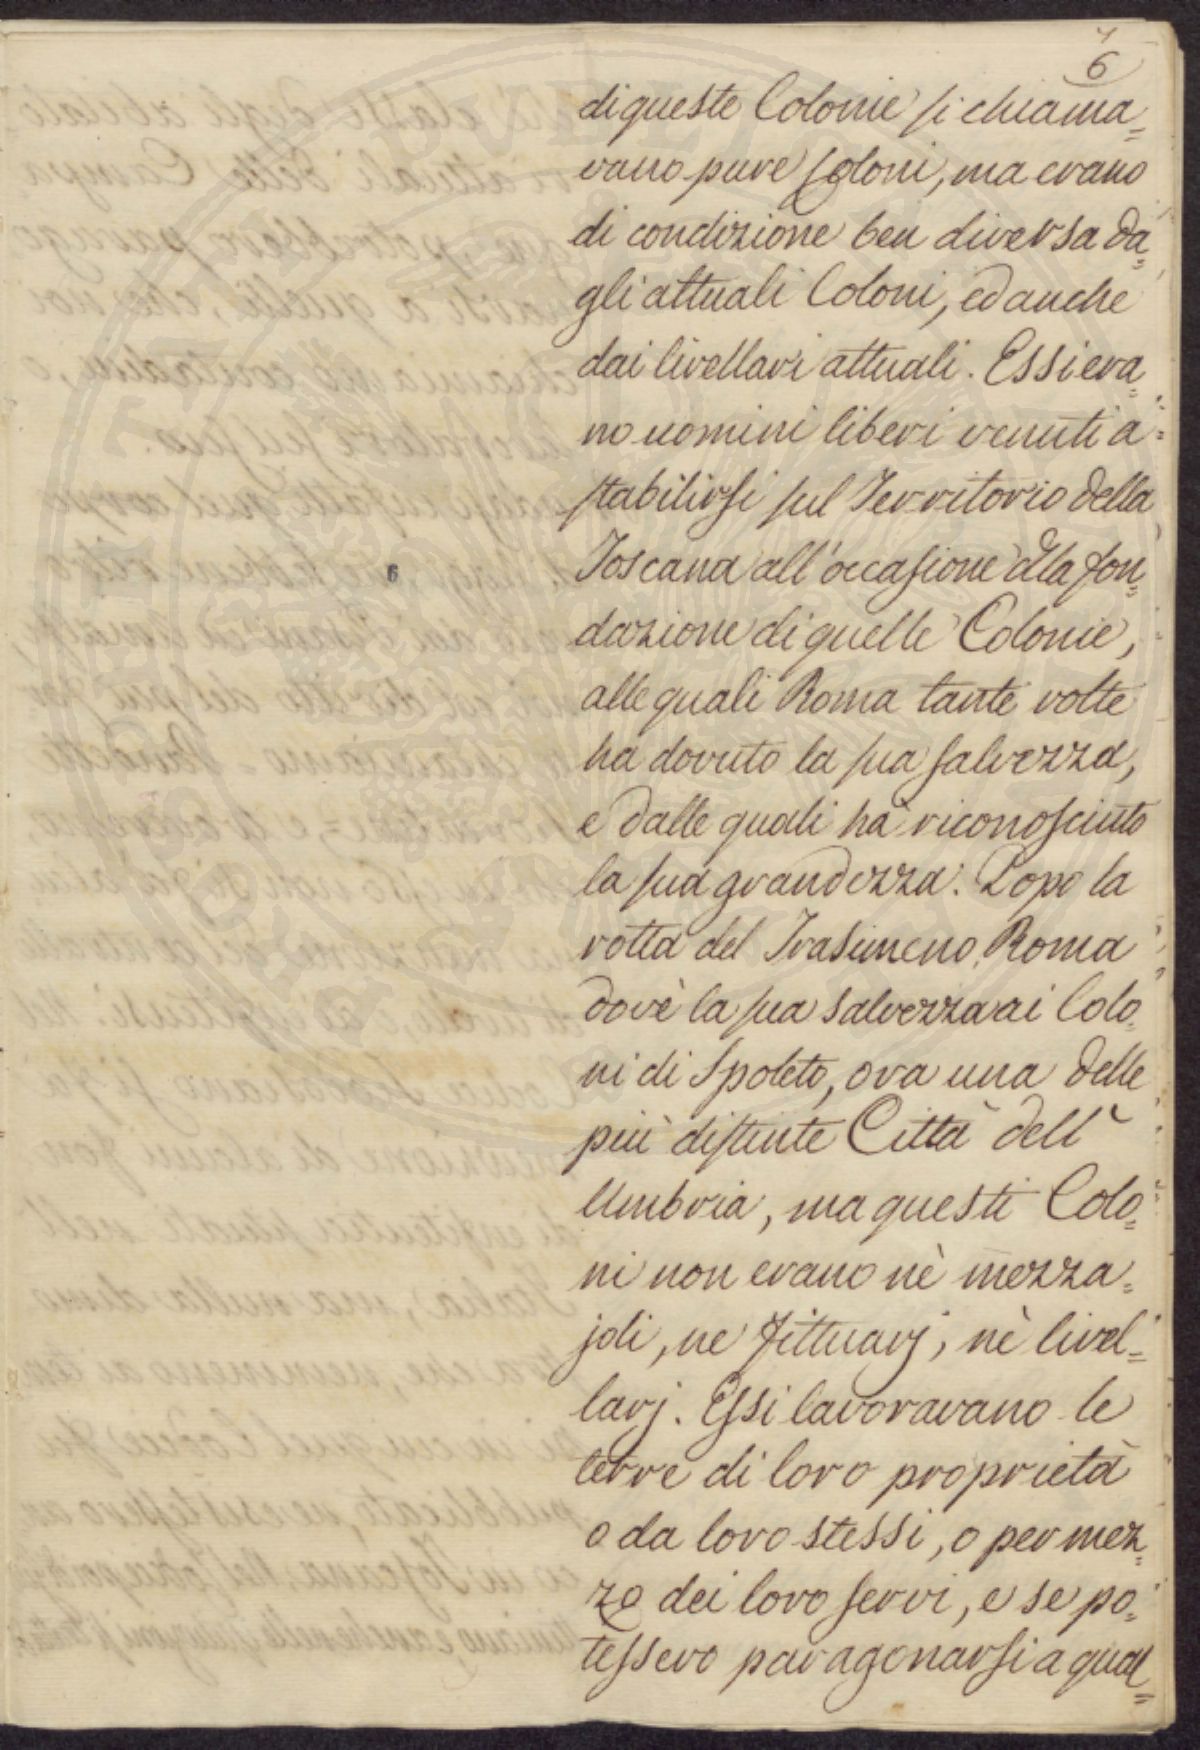 6
di queste Colonie si chiama=
vano pure Coloni, ma erano
di condizione ben diversa da=
gli attuali Coloni, ed anche
dai livellari attuali. Essi era=
no uomini liberi venuti a=
stabilirsi sul Territorio della
Toscana all'occasione dlla fon=
dazione di quelle Colonie,
alle quali Roma tante volte
ha dovuto la sua salvezza,
e dalle quali ha riconosciuto
la sua grandezza. Dopo la
rotta del Trasimeno, Roma
dovè la sua salvezza ai Colo=
ni di Spoleto, ora una delle
più distinte Città dell'
Umbria, ma questi Colo=
ni non erano nè mezza=
joli, ne fittuarj, nè livel=
larj. Essi lavoravano le
terre di loro proprietà
o da loro stessi, o per mez=
zo dei loro servi, e se po=
tessero paragonarsi a qual=
6